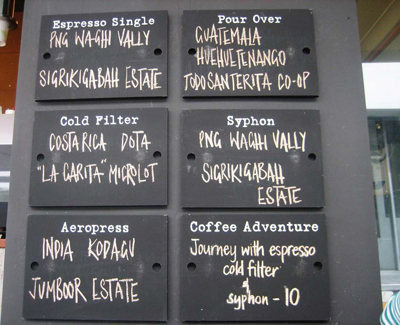 Espresso Single
PNG WAGHI VALLY
SIGRIKIGABAH ESTATE
Pour Over
GUATEMALA
HUEHUETENANGO
TODOSANTERITA CO-OP
Cold Filter
COSTARICA DOTA
"LA CARITA" MICROLOT
Syphon
PNG WAGHI VALLY
SIGRIKIGABAH
ESTATE
Aeropress
INDIA KODAGU
JUMBOOR ESTATE
Coffee Adventure
Journey with espresso
cold filter
&
syphon - 10